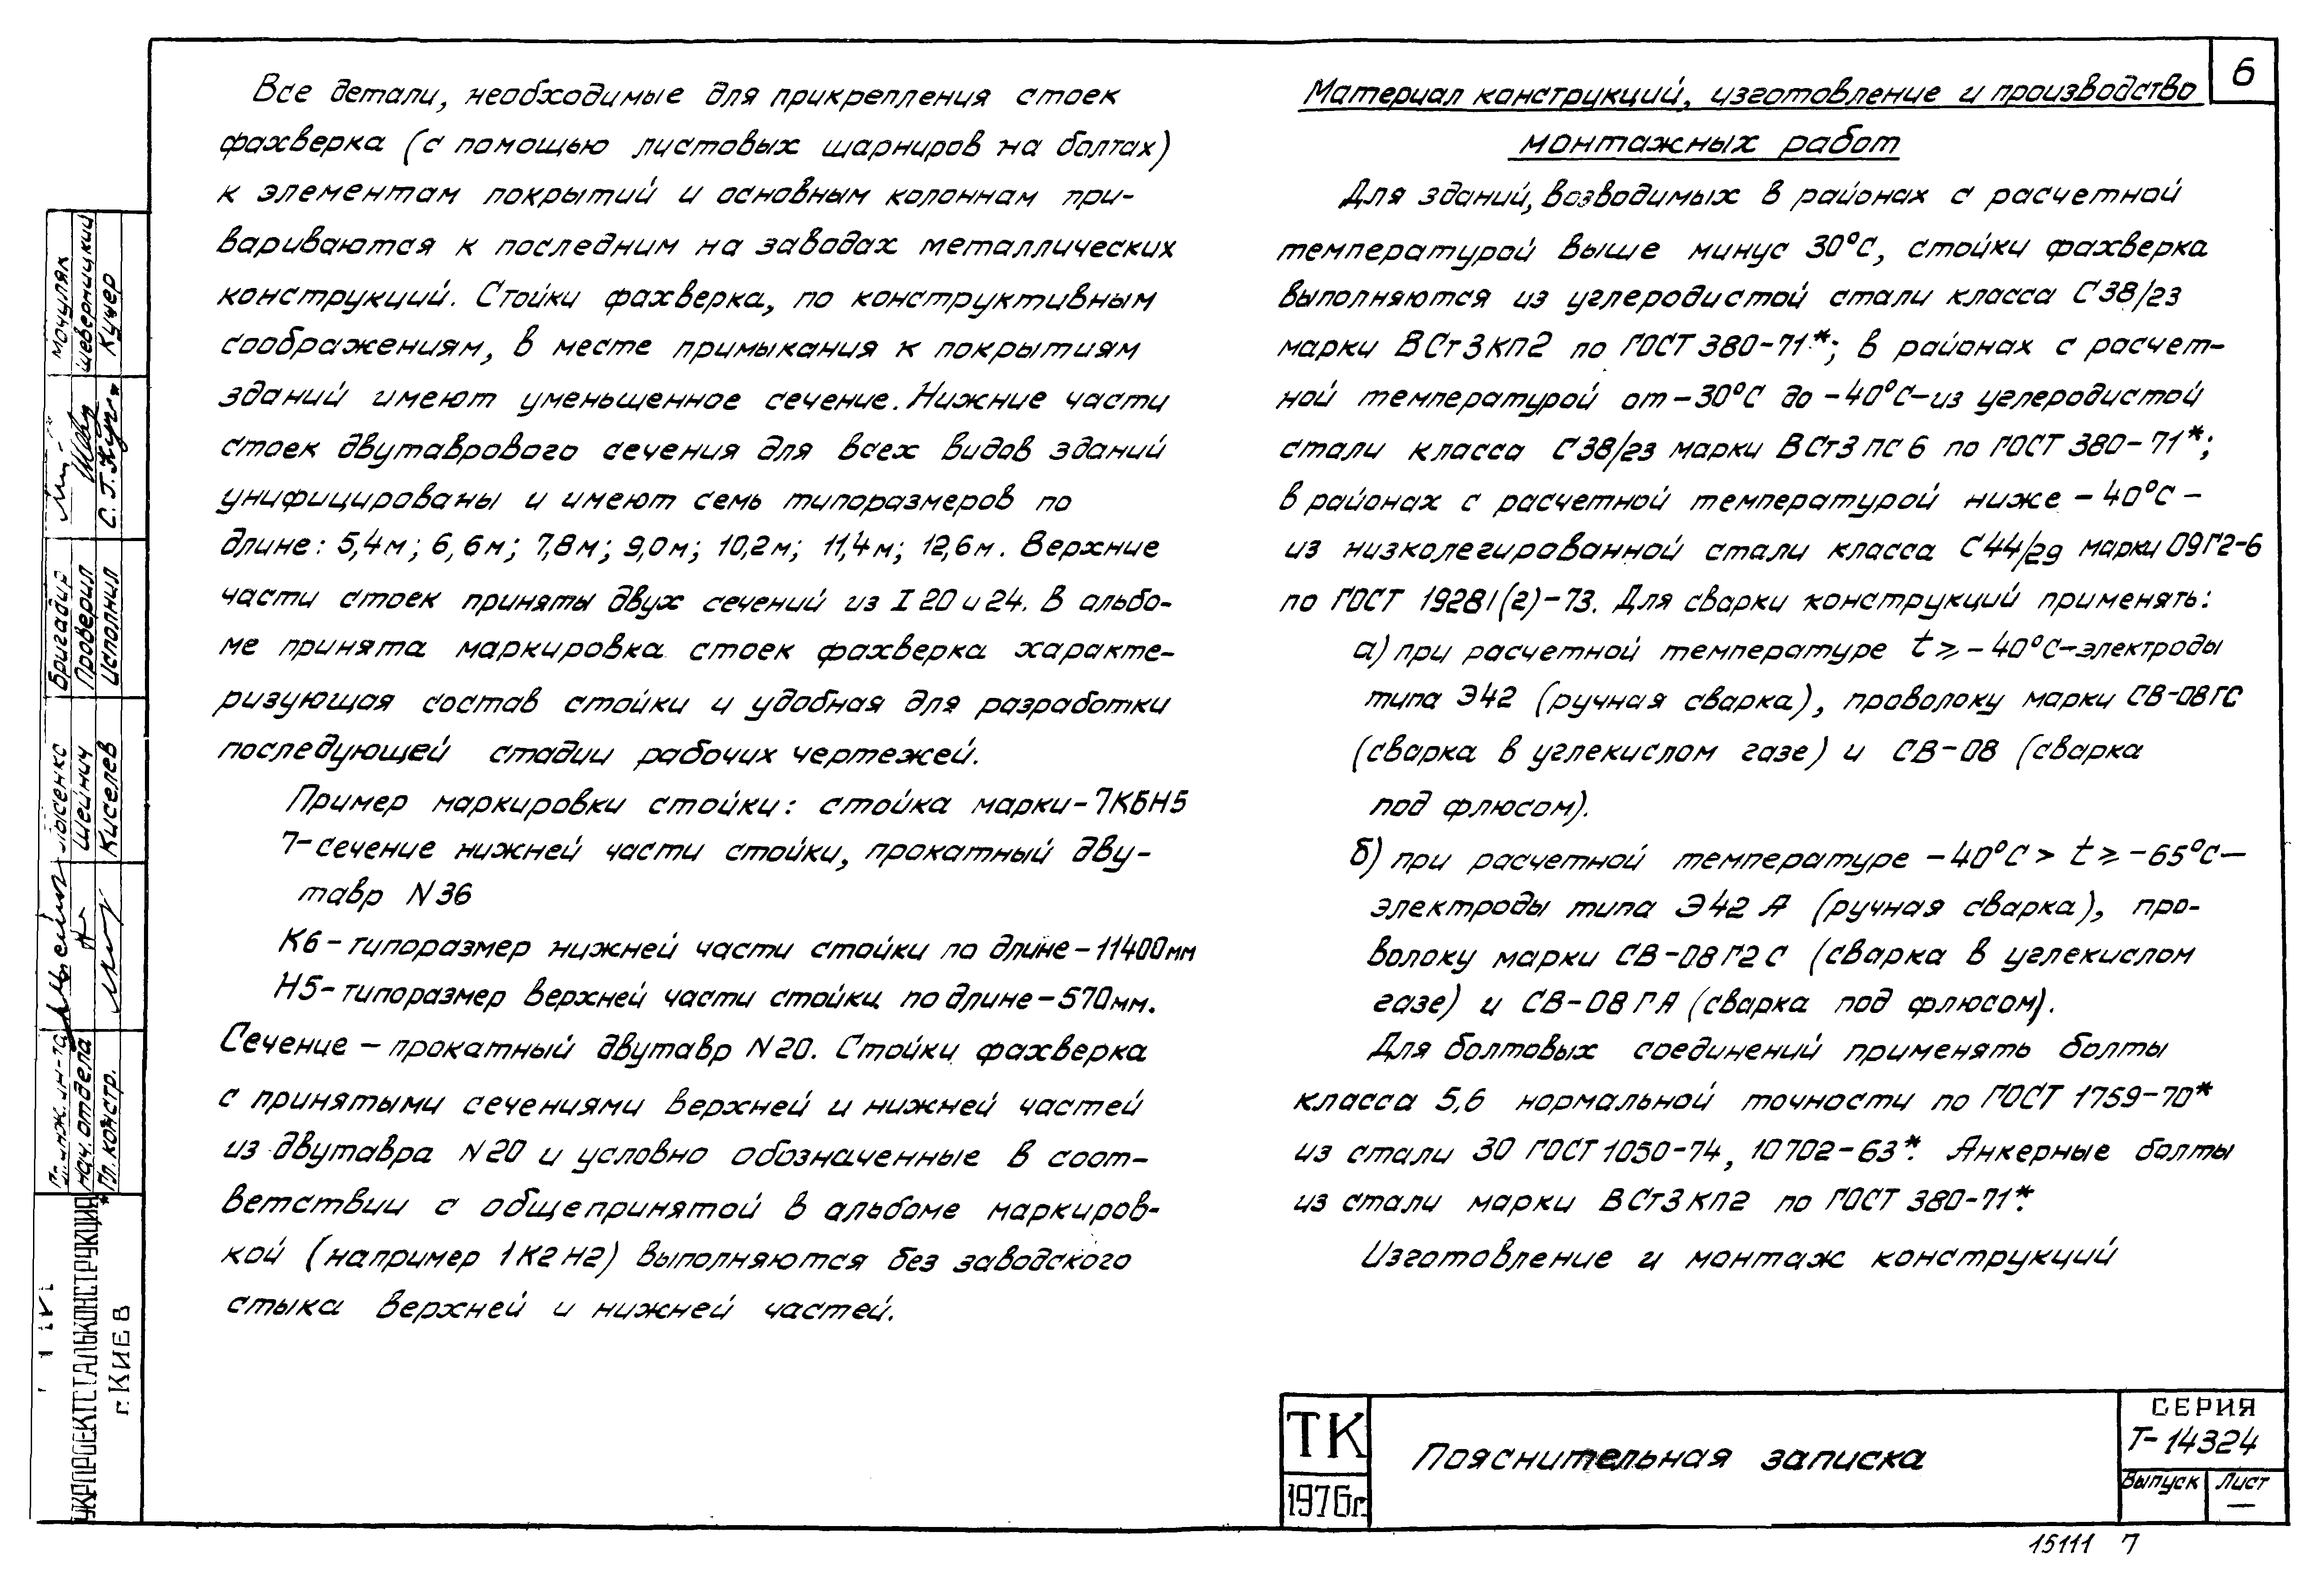 Все детали, необходимые для прикрепления стоек
фахверка (с помощью листовых шарниров на болтах)
к элементам покрытий и основным колоннам при-
вариваются к последним на заводах металлических
конструкций. Стойки фахверка, по конструктивным
соображениям, в месте примыкания к покрытиям
зданий имеют уменьшенное сечение. Нижние части
стоек двутаврового сечения для всех видов зданий
унифицированы и имеют семь типоразмеров по
длине: 5,4м; 6,6м; 7,8м; 9,0м; 10,2м; 11,4м; 12,6м. Верхние
части стоек приняты двух сечений из I 20 и 24. В альбо-
ме принята маркировка стоек фахверка характе-
ризующая состав стойки и удобная для разработки
последующей стадии рабочих чертежей.
Пример маркировки стойки: стойка марки-7К6Н5
7-сечение нижней части стойки, прокатный дву-
тавр N36
К6-типоразмер нижней части стойки по длине-11400мм
Н5-типоразмер верхней части стойки по длине-570мм.
Сечение - прокатный двутавр N20. Стойки фахверка
с принятыми сечениями верхней и нижней частей
из двутавра N20 и условно обозначенные в соот-
ветствии с общепринятой в альбоме маркиров-
кой (например 1К2Н2) выполняются без заводского
стыка верхней и нижней частей.
6
Материал конструкций, изготовление и производство
монтажных работ
Для зданий, возводимых в районах с расчетной
температурой выше минус 30°С, стойки фахверка
выполняются из углеродистой стали класса С38/23
марки ВСт3кп2 по ГОСТ 380-71*; в районах с расчет-
ной температурой от -30°С до -40°С-из углеродистой
стали класса С38/23 марки ВСт3пс6 по ГОСТ 380-71*;
в районах с расчетной температурой ниже -40°С -
из низколегированной стали класса С44/29 марки 09Г2-6
по ГОСТ 19281(2)-73. Для сварки конструкций применять:
а) при расчетной температуре t ≥ -40°С-электроды
типа Э42 (ручная сварка), проволоку марки СВ-08ГС
(сварка в углекислом газе) и СВ-08 (сварка
под флюсом).
б) при расчетной температуре -40°С > t ≥ -65°С-
электроды типа Э42А (ручная сварка), про-
волоку марки СВ-08Г2С (сварка в углекислом
газе) и СВ-08ГА (сварка под флюсом).
Для болтовых соединений применять болты
класса 5,6 нормальной точности по ГОСТ 1759-70*
из стали 30 ГОСТ 1050-74, 10702-63*. Анкерные болты
из стали марки ВСт3кп2 по ГОСТ 380-71*.
Изготовление и монтаж конструкций
ТК
1976г.
Пояснительная записка
СЕРИЯ
Т-14324
Выпуск
Лист
—
15111 7
Мочуляк
Шеверницкий
Кучер
Бригадир
Проверил
Исполнил
Лысенко
Шейнич
Киселев
Гл. инж. ин-та
Нач. отдела
Гл. констр.
УКРПРОЕКТСТАЛЬКОНСТРУКЦИЯ
г. КИЕВ